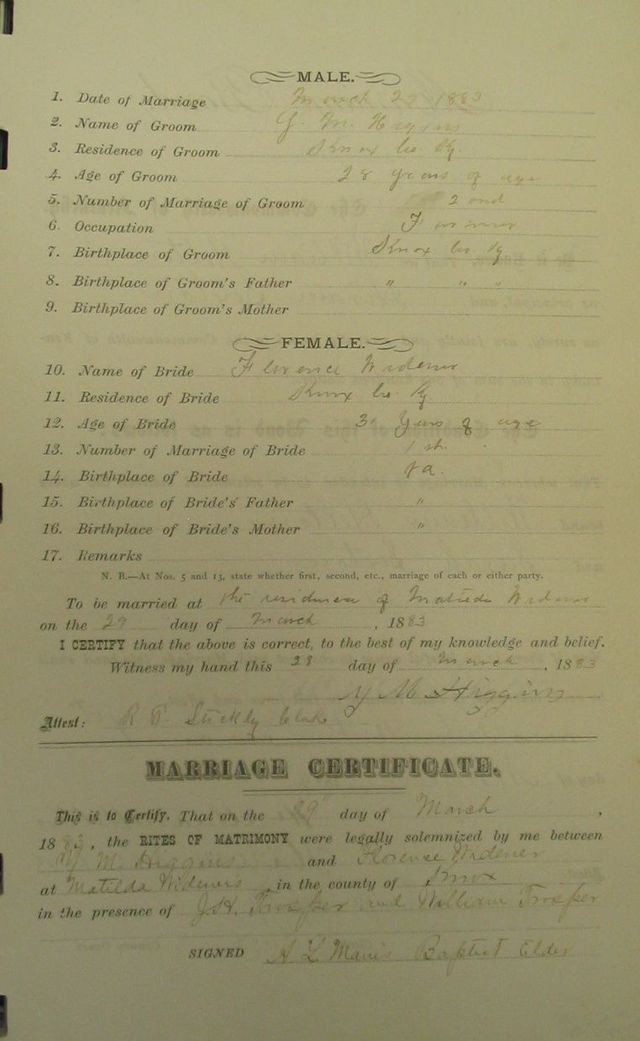 MALE.
1. Date of Marriage March 29 1883
2. Name of Groom Y. M. Higgins
3. Residence of Groom Knox Co. Ky.
4. Age of Groom 28 years of age
5. Number of Marriage of Groom 2 ond
6. Occupation Farmer
7. Birthplace of Groom Knox Co. Ky
8. Birthplace of Groom's Father " " "
9. Birthplace of Groom's Mother
FEMALE.
10. Name of Bride Florence Widener
11. Residence of Bride Knox Co. Ky
12. Age of Bride years of age
13. Number of Marriage of Bride 1 st.
14. Birthplace of Bride Va.
15. Birthplace of Bride's Father "
16. Birthplace of Bride's Mother "
17. Remarks
N. B.—At Nos. 5 and 13, state whether first, second, etc., marriage of each or either party.
To be married at the residence of Matilda Widener
on the 29 day of March, 1883
I CERTIFY that the above is correct, to the best of my knowledge and belief.
Witness my hand this 28 day of March, 1883
Y M Higgins
Attest: R. P. Stickly Clerk
MARRIAGE CERTIFICATE.
This is to Certify, That on the 29 day of March,
1883, the RITES OF MATRIMONY were legally solemnized by me between
Y. M. Higgins and Florence Widener
at Matilda Wideners, in the county of Knox
in the presence of J. H. Trosper and William Trosper
SIGNED A L Mavis Baptist Elder